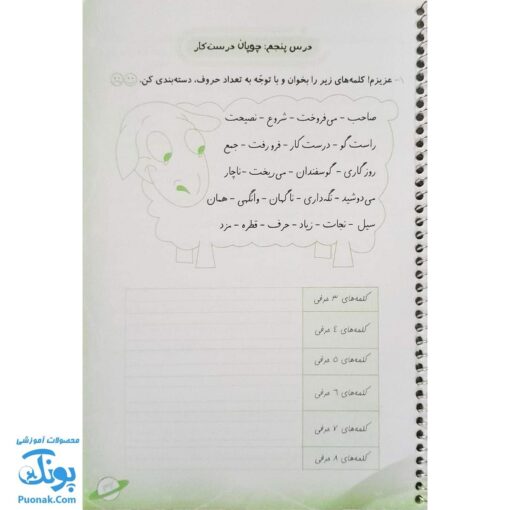 درس پنجم: چوپان درست‌کار
۱- عزیزم! کلمه‌های زیر را بخوان و با توجّه به تعداد حروف، دسته‌بندی کن.
صاحب - می‌فروخت - شروع - نصیحت
راست‌گو - درست‌کار - فرو رفت - جمع
روزگاری - گوسفندان - می‌ریخت - ناچار
می‌دوشید - نگه‌داری - ناگهان - وانگهی - همان
سیل - نجات - زیاد - حرف - قطره - مزد
کلمه‌های ۳ حرفی
کلمه‌های ۴ حرفی
کلمه‌های ۵ حرفی
کلمه‌های ۶ حرفی
کلمه‌های ۷ حرفی
کلمه‌های ۸ حرفی
محصولات آموزشی
پونک
Puonak.Com